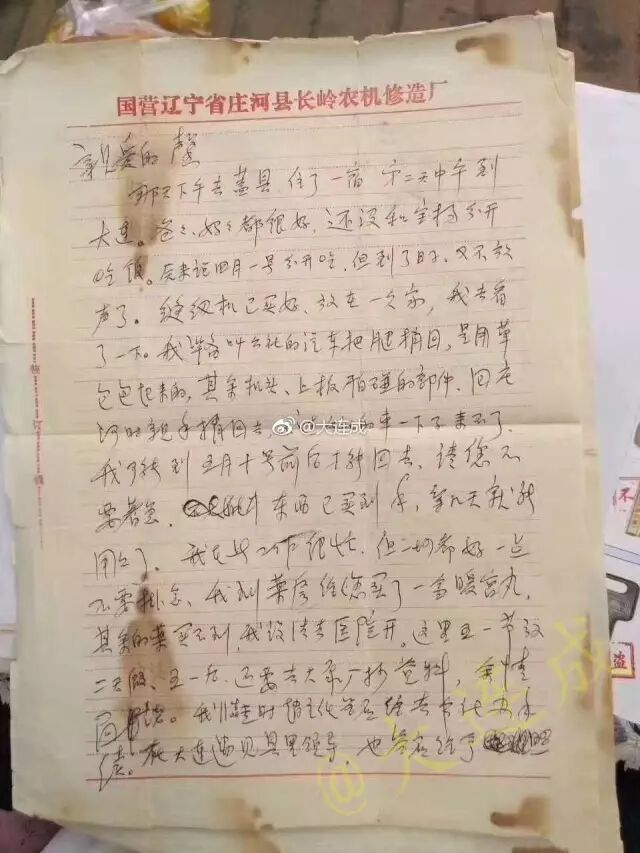 国营辽宁省庄河县长岭农机修造厂
亲爱的
那天下午去盖县住了一宿 第二天中午到
大连。爸爸、妈妈都很好，还没和宝杨分开
吃饭。后来说四月一号分开吃，但到了日子，又不放
声了。缝纫机已买好、放在一个家，我去看
了一下。我准备叫公社的汽车把腿捎回，是用草
包包起来的，其余机头、上板怕碰的部件、回庄
河时亲手捎回去，车一下子来不了。
我可能到五月十号前后才能回去、请您不
要着急， 东西已买到手，等几天就能
用上了。 我在此工作很忙，但一切都好一点
不要挂念、我到药房给您买了一盒暖宫丸，
其余的药买不到，我设法去医院开。这里五一节放
二天假、五一后，还要去 厂抄资料，
在大连遇见县里领导、也 给了
@大连成
@大连成